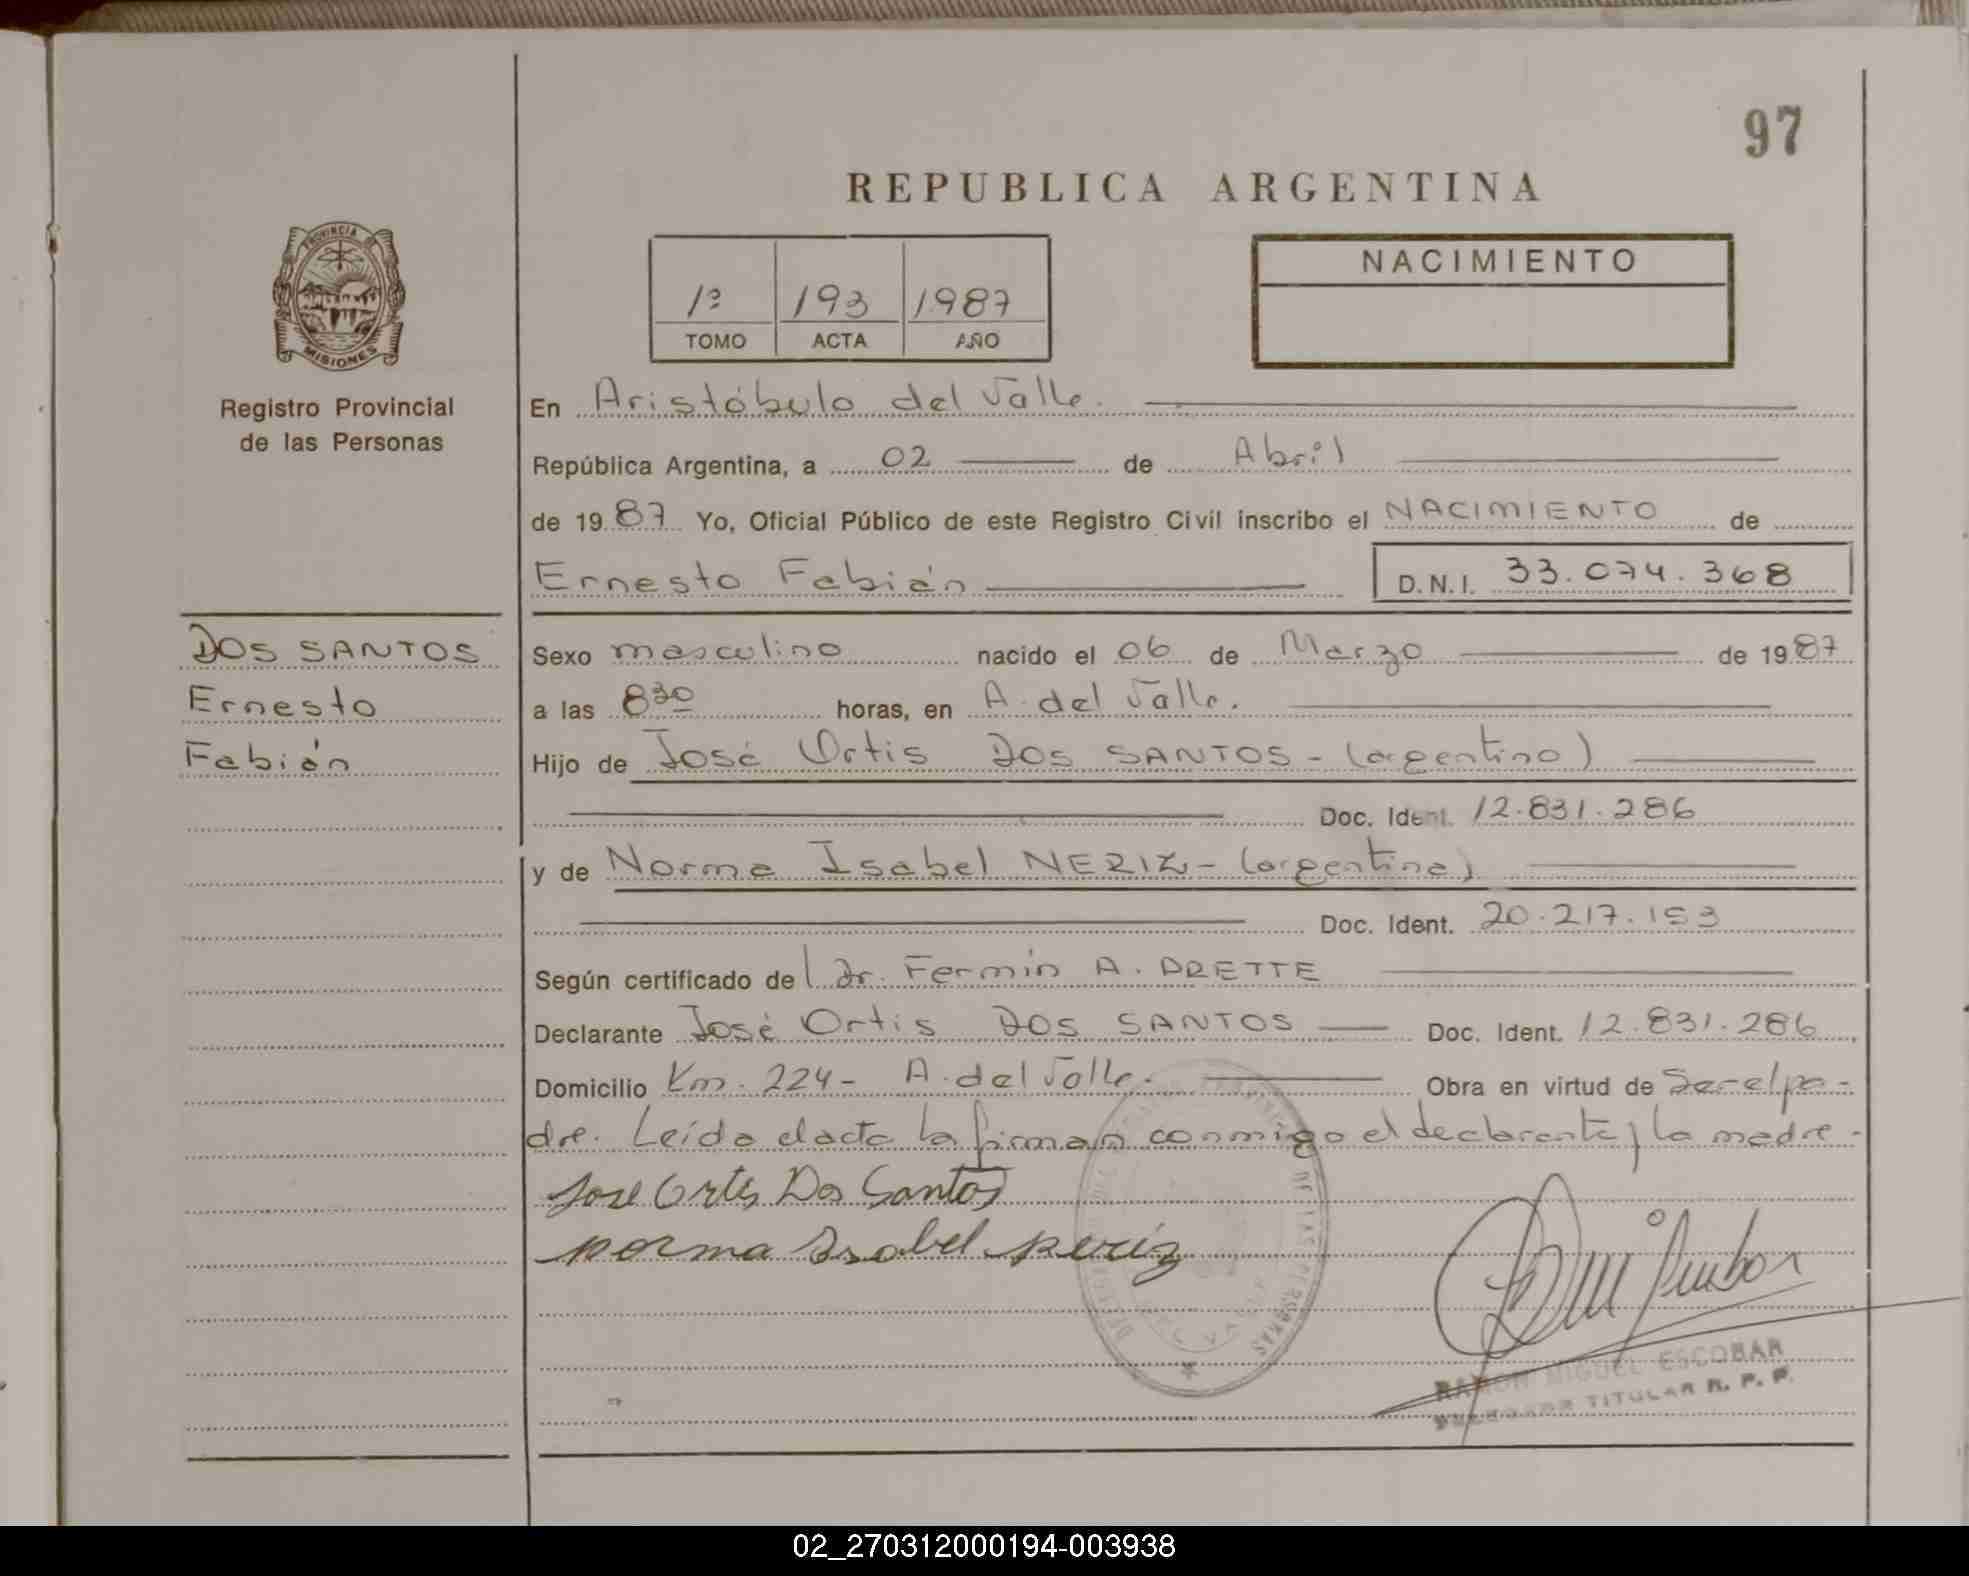 97
REPUBLICA ARGENTINA
PROVINCIA DE
MISIONES
Registro Provincial
de las Personas
1º 193 1987
TOMO ACTA AÑO
NACIMIENTO
En Aristóbulo del Valle.
República Argentina, a 02 de Abril
de 1987 Yo, Oficial Público de este Registro Civil inscribo el NACIMIENTO de
Ernesto Fabián D.N.I. 33.074.368
DOS SANTOS
Ernesto
Fabián
Sexo masculino nacido el 06 de Marzo de 1987
a las 830 horas, en A. del Valle.
Hijo de José Ortis DOS SANTOS - (argentino)
Doc. Ident. 12.831.286
y de Norma Isabel NERIZ - (argentina)
Doc. Ident. 20.217.153
Según certificado del Dr. Fermín A. DRETTE
Declarante José Ortis DOS SANTOS Doc. Ident. 12.831.286
Domicilio Km. 224 - A. del Valle. Obra en virtud de Ser el pa-
dre. Leída el acta la firman conmigo el declarante y la madre -
Jose Ortis Dos Santos
norma Isabel neriz
DE LAS PERSONAS
DEL VALLE
RAMON MIGUEL ESCOBAR
TITULAR R. P. P.
02_270312000194-003938